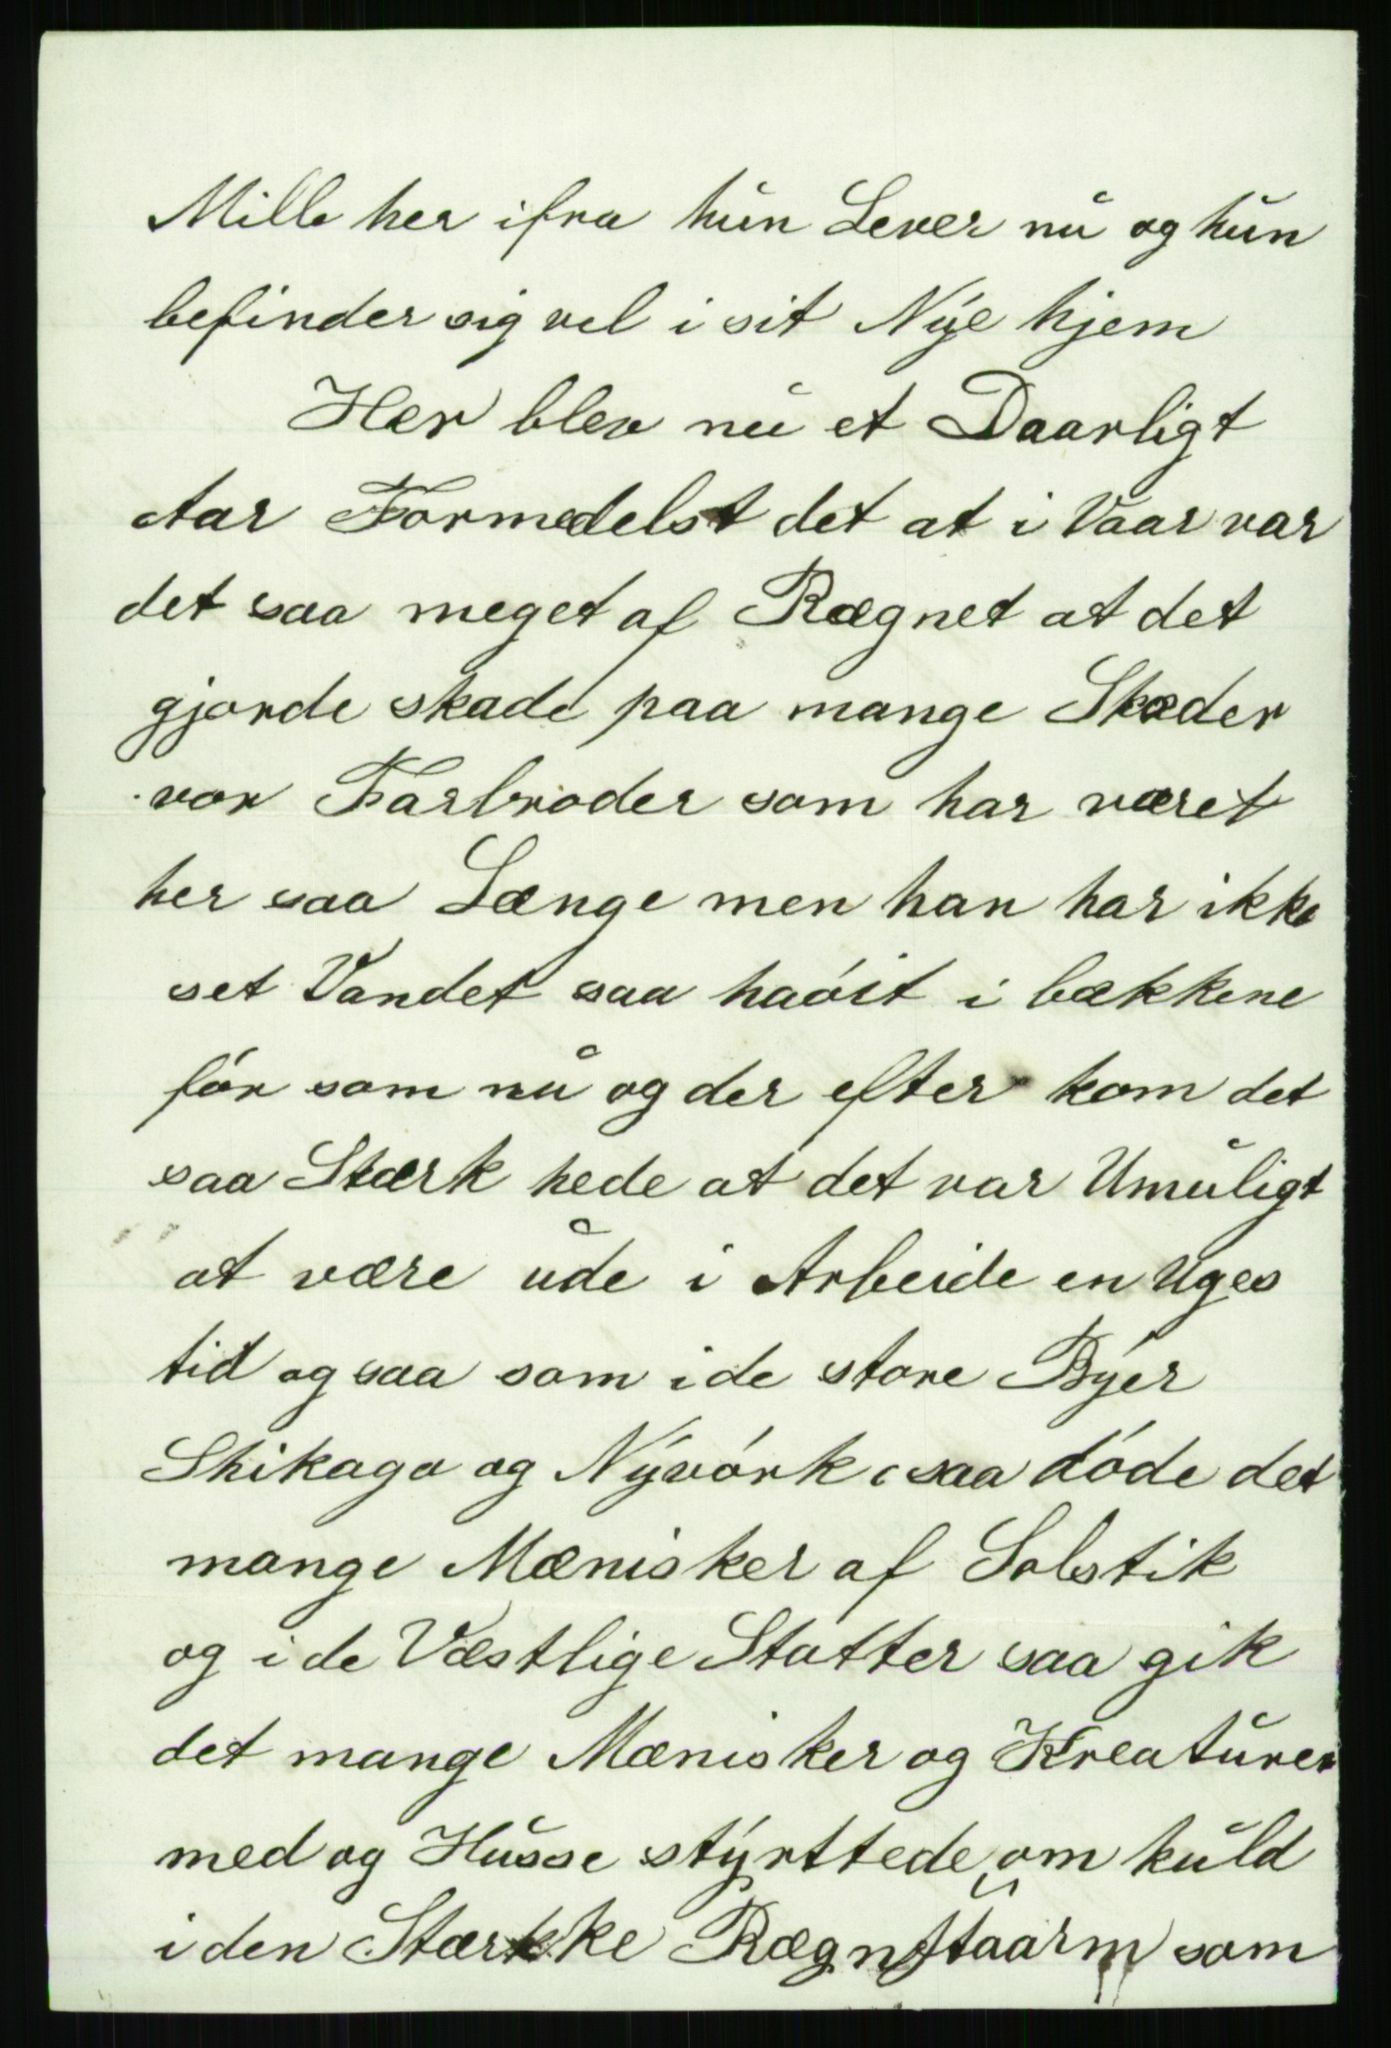 Mille her ifra hun Lever nu og hun
befinder sig vel i sit Nýe hjem
Her blev nu et Daarligt
Aar Formedelst det at i Vaar var
det saa meget af Rægnet at det
gjorde skade paa mange Stæder
vor Farbroder som har været
her saa Længe men han har ikke
set Vandet saa haóit i bækkene
fór som nu og der efter kom det
saa Stærk hede at det var Umuligt
at være ude i Arbeide en Uges
tid og saa som i de store Býer
Shikago og Nývórk saa dóde det
mange Mænisker af Solstik
og i de Væstlige Statter saa gik
det mange Mænisker og Kreaturer
med og Husse stýrttede om kuld
i den Stærkke Rægnstaarm som